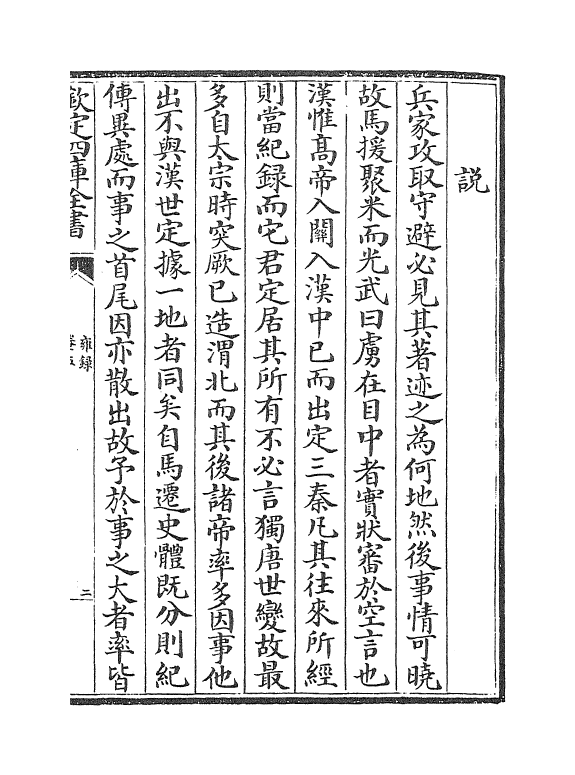 説
兵家攻取守避必見其著迹之為何地然後事情可曉
故馬援聚米而光武曰虜在目中者實狀審於空言也
漢惟髙帝入關入漢中已而出定三秦凡其往來所經
則當紀録而宅君定居其所有不必言獨唐世變故最
多自太宗時突厥已造渭北而其後諸帝率多因事他
出不與漢世定據一地者同矣自馬遷史體既分則紀
傳異處而事之首尾因亦散出故予於事之大者率皆
欽定四庫全書
雍録
卷五
三